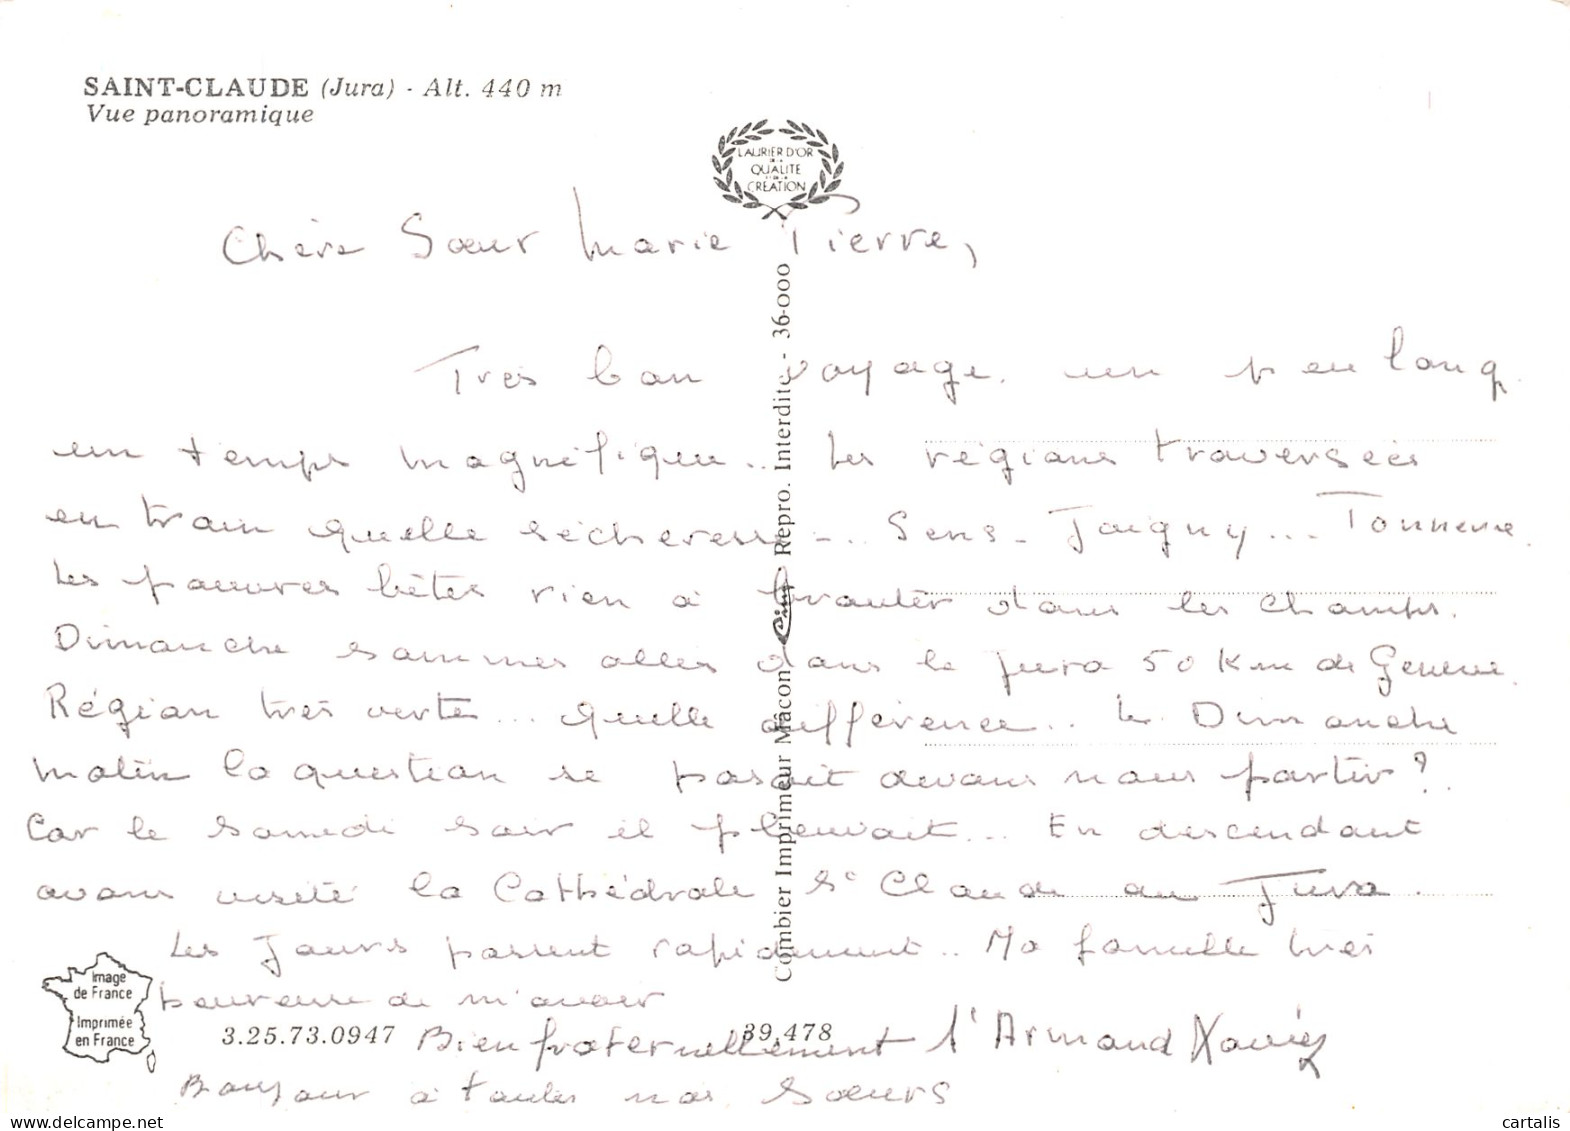 SAINT-CLAUDE (Jura) - Alt. 440 m
Vue panoramique
LAURIER D'OR
DE LA
QUALITE
ET DE LA
CREATION
Chère Sœur Marie Pierre,
Très bon voyage. un peu long
un temps magnifique.. Les régions traversées
en train quelle sècheresse -.. Sens - Joigny... Tonnerre.
Les pauvres bêtes rien à brouter dans les champs.
Dimanche sommes allés dans le Jura 50 Km de Genève.
Région très verte... quelle différence.. Le Dimanche
matin la question se posait avons nous partir ?
Car le samedi soir il pleuvait... En descendant
avons visité la Cathédrale St Claude du Jura.
Les Jours passent rapidement.. Ma famille très
heureuse de m'avoir
Bien fraternellement
Bonjour à toutes nos Sœurs
Combier Imprimeur Mâcon Cim Repro. Interdite - 36-000
Image
de France
Imprimée
en France
3.25.73.0947
39.478
www.delcampe.net
cartalis